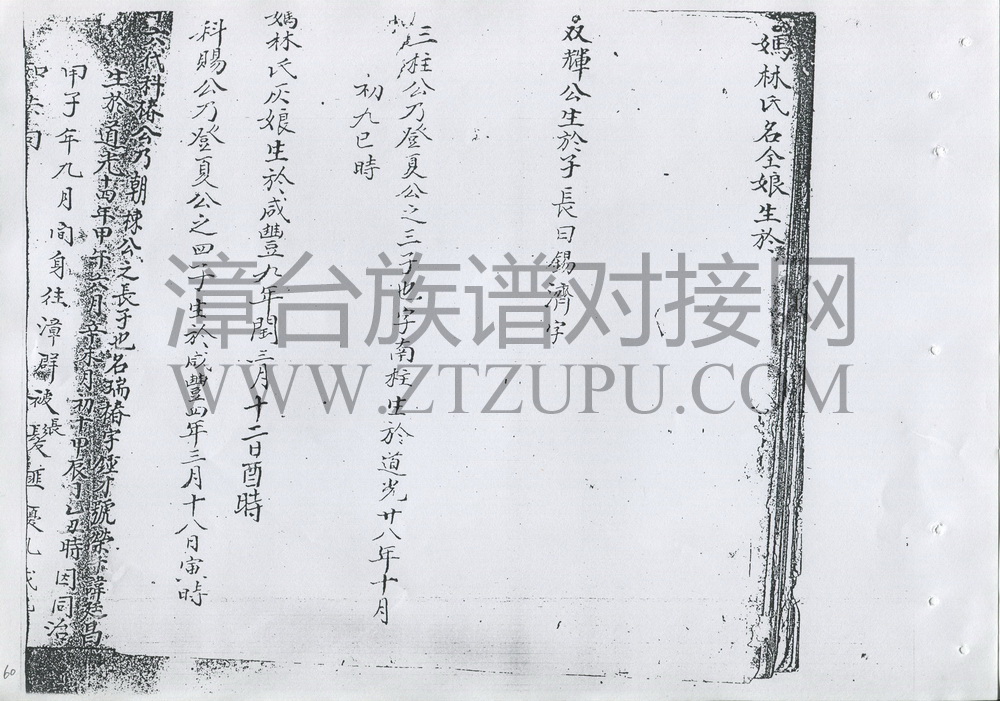 媽林氏名全娘生於
双輝公生於子長曰錫濟字
三柱公乃登夏公之三子也字南柱生於道光廿八年十月
初九巳時
媽林氏灰娘生於咸豐九年閏三月十二日酉時
科賜公乃登夏公之四子生於咸豐四年三月十八日寅時
代科椿公乃朝棟公之長子也名瑞椿字經 號榮 諱廷昌
生於道光 年甲午六月辛未 初十甲辰 乙丑時因同治
甲子年九月間身往漳群被張髮匪擾乱
漳台族谱对接网
WWW.ZTZUPU.COM
60